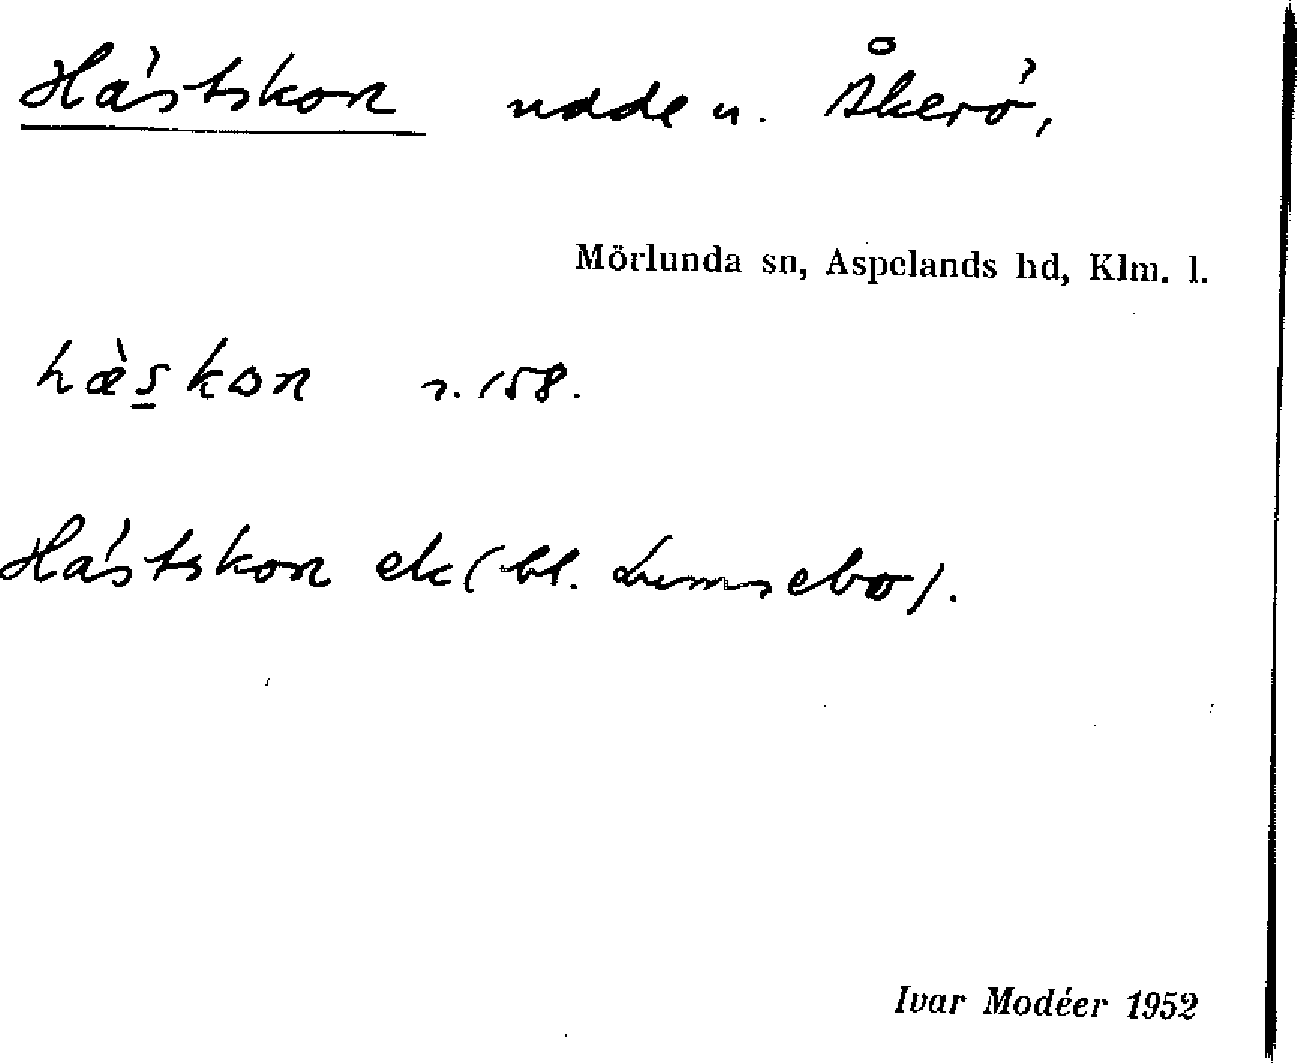 Hästskon udde u. Åkerö,
Mörlunda sn, Aspelands hd, Klm. l.
hæ̀s̲kon n. 158.
Hästskon ek (bl.
Ivar Modéer 1952